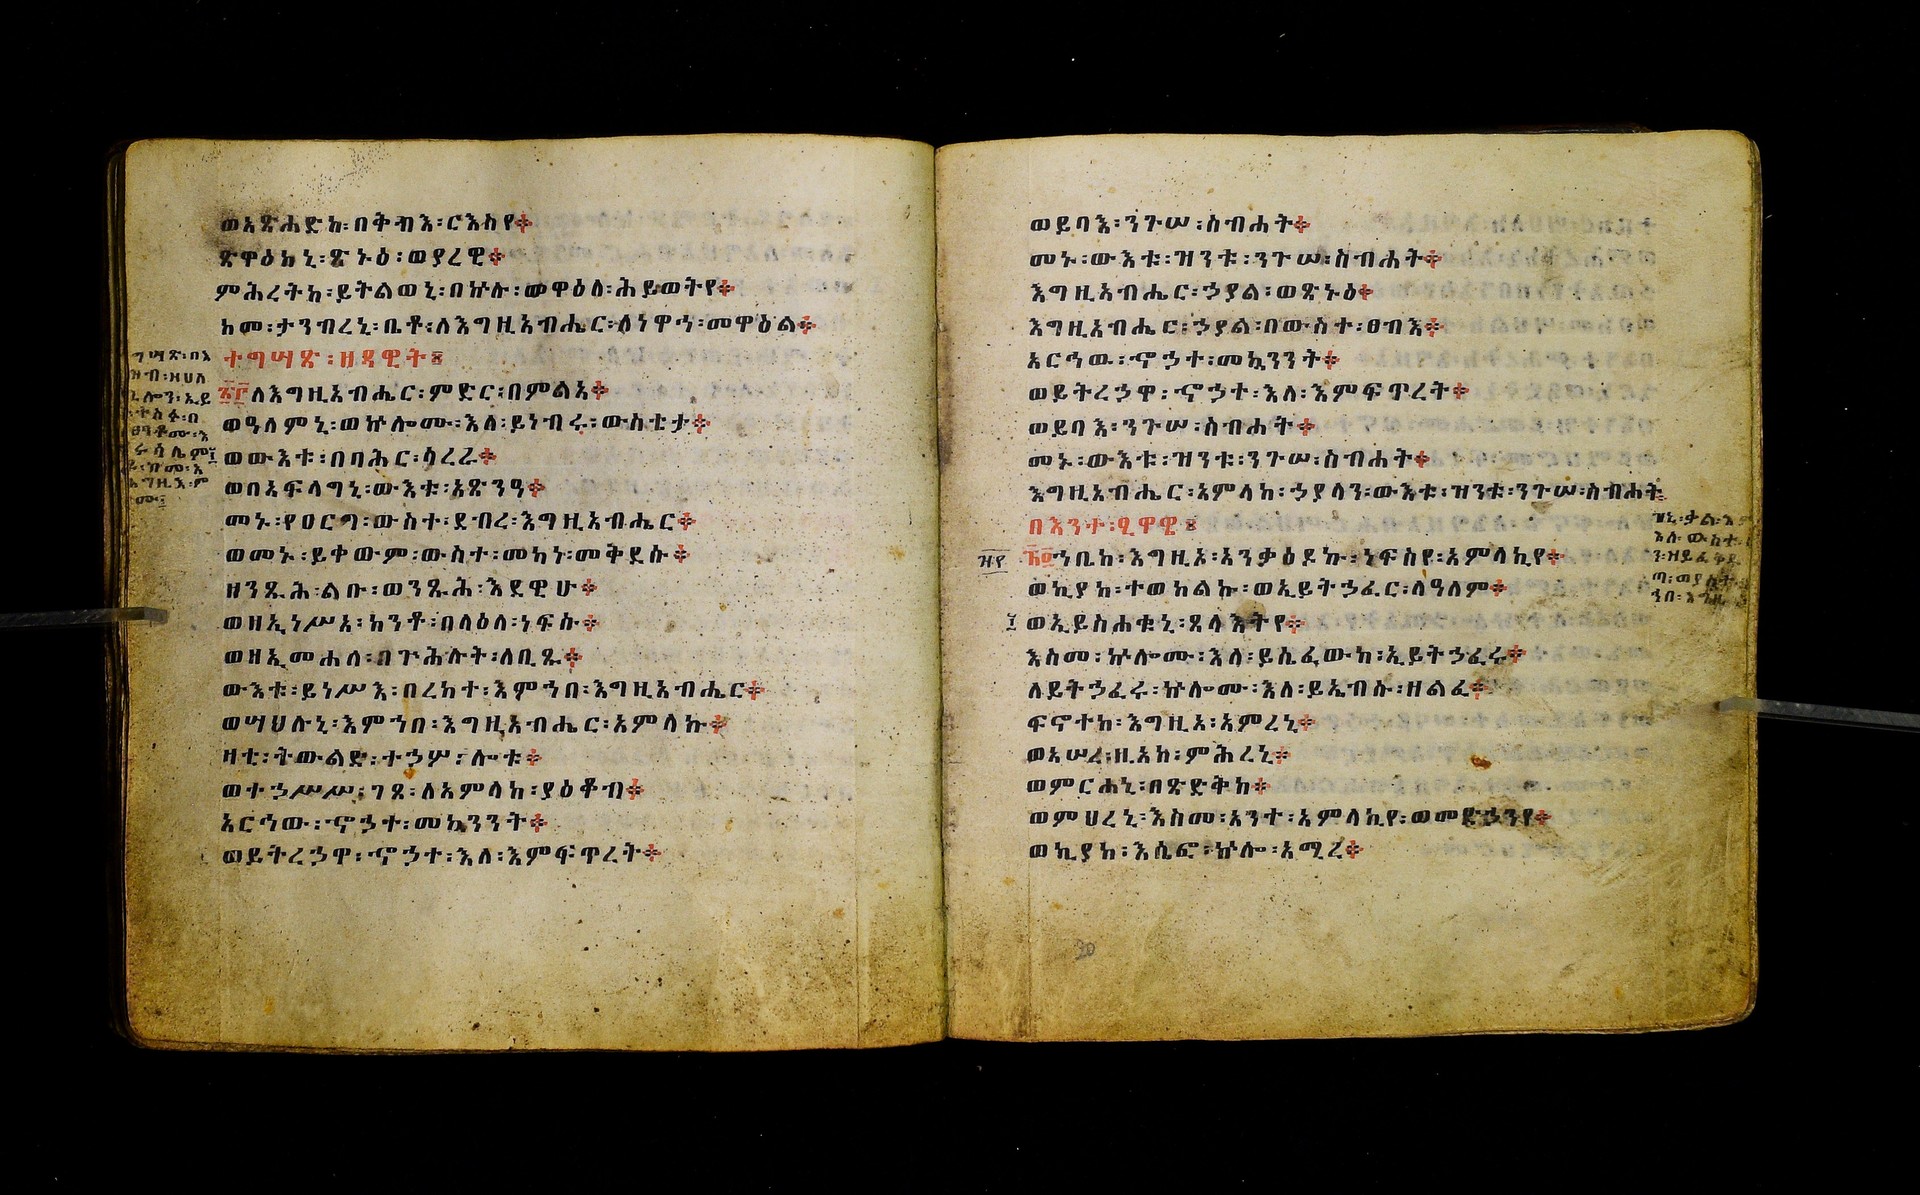 ወአጽሐድከ፡በቅብእ፡ርእስየ፨
ጽዋዕከኒ፡ጽኑዕ፡ወያረዊ፨
ምሕረትከ፡ይትልወኒ፡በኵሉ፡መዋዕለ፡ሕይወትየ፨
ከመ፡ታንብረኒ፡ቤቶ፡ለእግዚአብሔር፡ለነዋኅ፡መዋዕል፨
ተግሣጽ፡ዘዳዊት፤
፳፫ለእግዚአብሔር፡ምድር፡በምልአ፨
ወዓለምኒ፡ወኵሎሙ፡እለ፡ይነብሩ፡ውስቴታ፨
ወውእቱ፡በባሕር፡ሳረራ፨
ወበአፍላግኒ፡ውእቱ፡አጽንዓ፨
መኑ፡የዐርግ፡ውስተ፡ደብረ፡እግዚአብሔር፨
ወመኑ፡ይቀውም፡ውስተ፡መካነ፡መቅደሱ፨
ዘንጹሕ፡ልቡ፡ወንጹሕ፡እደዊሁ፨
ወዘኢነሥአ፡ከንቶ፡በላዕለ፡ነፍሱ፨
ወዘኢመሐለ፡በጕሕሉት፡ለቢጹ፨
ውእቱ፡ይነሥእ፡በረከተ፡እምኀበ፡እግዚአብሔር፨
ወሣህሉኒ፡እምኀበ፡እግዚአብሔር፡አምላኩ፨
ዛቲ፡ትውልድ፡ተኃሦ፡ሎቱ፨
ወተኃሥሥ፡ገጸ፡ለአምላከ፡ያዕቆብ፨
አርኅው፡ኆኃተ፡መኳንንት፨
ወይትረኃዋ፡ኆኃተ፡እለ፡እምፍጥረት፨
ወይባእ፡ንጉሠ፡ስብሐት፨
መኑ፡ውእቱ፡ዝንቱ፡ንጉሠ፡ስብሐት፨
እግዚአብሔር፡ኃያል፡ወጽኑዕ፨
እግዚአብሔር፡ኃያል፡በውስተ፡ፀብእ፨
አርኅዉ፡ኆኃተ፡መኳንንት፨
ወይትረኃዋ፡ኆኃተ፡እለ፡እምፍጥረት፨
ወይባእ፡ንጉሠ፡ስብሐት፨
መኑ፡ውእቱ፡ዝንቱ፡ንጉሠ፡ስብሐት፨
እግዚአብሔር፡አምላከ፡ኃያላን፡ውእቱ፡ዝንቱ፡ንጉሠ፡ስብሐት
በእንተ፡ፂዋዌ፤
፳፬ኀቤከ፡እግዚኦ፡አንቃዕዶኩ፡ነፍስየ፡አምላኪየ፨
ወኪያከ፡ተወከልኩ፡ወኢይትኃፈር፡ለዓለም፨
ወኢይስሐቁኒ፡ጸላእትየ፨
እስመ፡ኵሎሙ፡እለ፡ይሴፈውከ፡ኢይትኃፈሩ፨
ለይትኃፈሩ፡ኵሎሙ፡እለ፡ይኤብሱ፡ዘልፈ፨
ፍኖተከ፡እግዚኦ፡አምረኒ፨
ወአሠረ፡ዚአከ፡ምሕረኒ፨
ወምርሐኒ፡በጽድቅከ፨
ወምህረኒ፡እስመ፡አንተ፡አምላኪየ፡ወመድኃንየ፨
ወኪያከ፡እሴፎ፡ኵሎ፡አሚረ፨
20